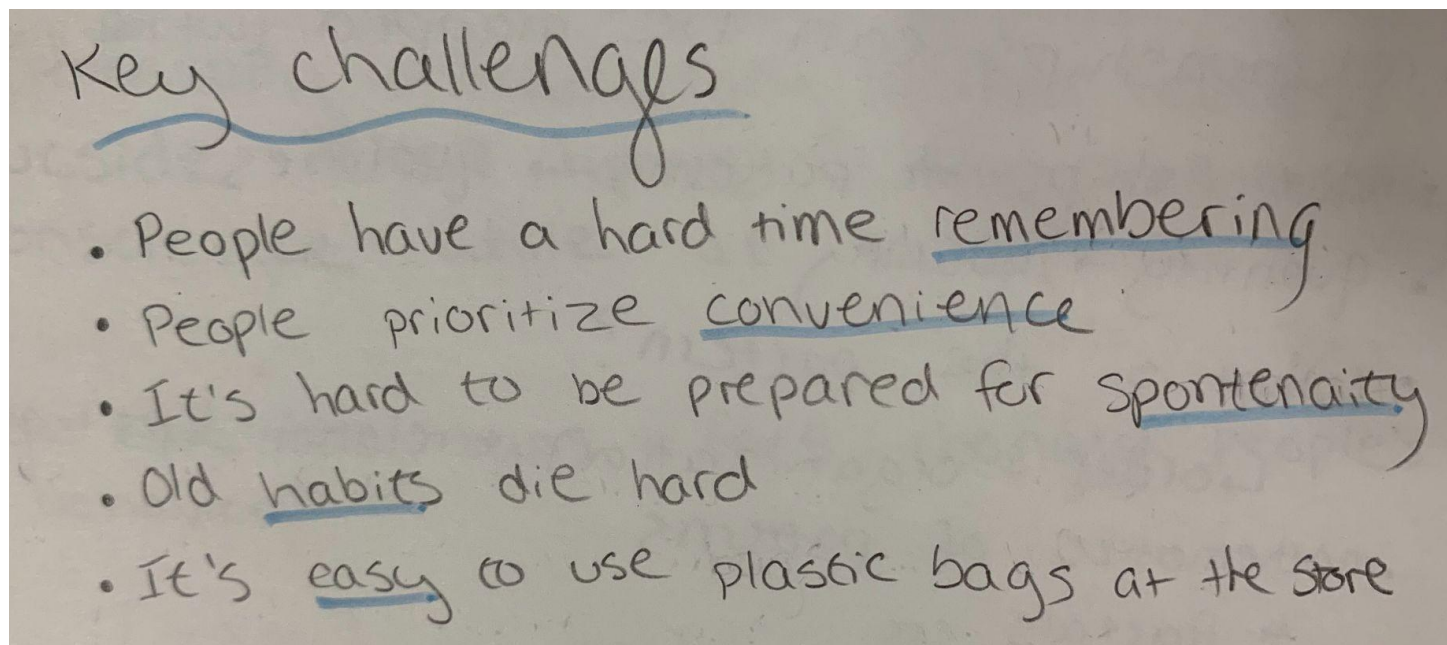 Key challenges
• People have a hard time remembering
• People prioritize convenience
• It's hard to be prepared for spontenaity
• Old habits die hard
• It's easy to use plastic bags at the store